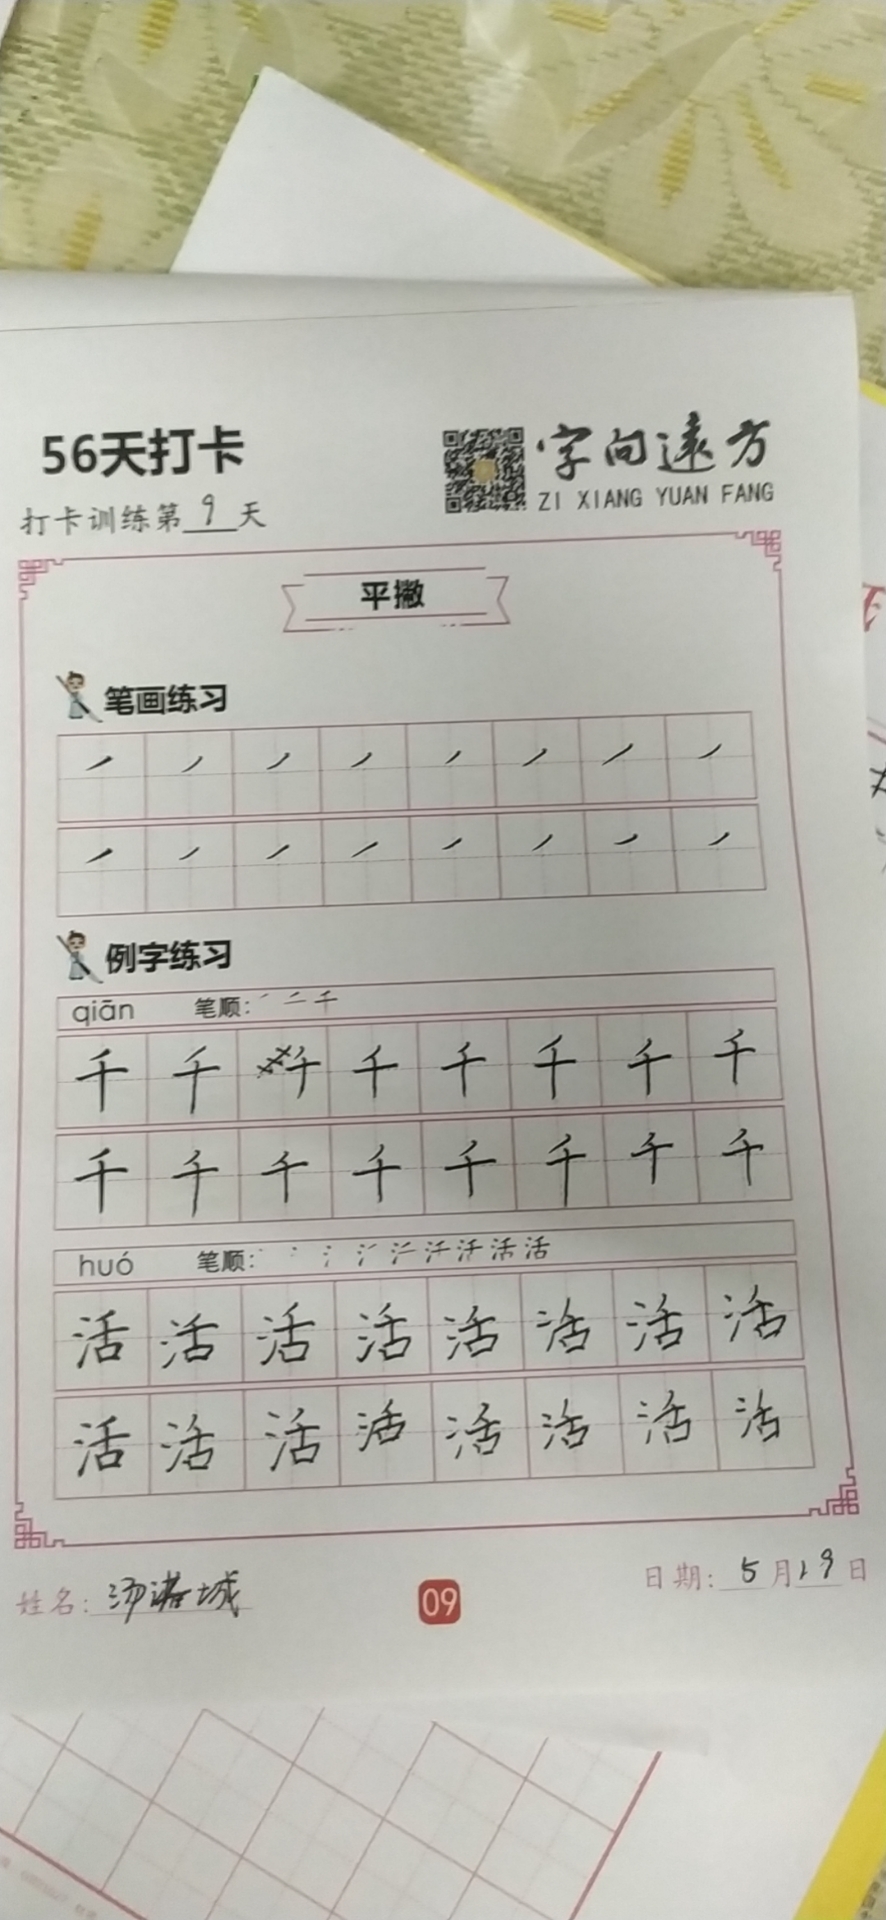 56天打卡
字向遠方
ZI XIANG YUAN FANG
打卡训练第9天
平撇
笔画练习
例字练习
qiān 笔顺: 千
千 千 千 千 千 千 千 千
千 千 千 千 千 千 千 千
huó 笔顺: 活
活 活 活 活 活 活 活 活
活 活 活 活 活 活 活 活
姓名: 汤诺城
09
日期: 5月19日